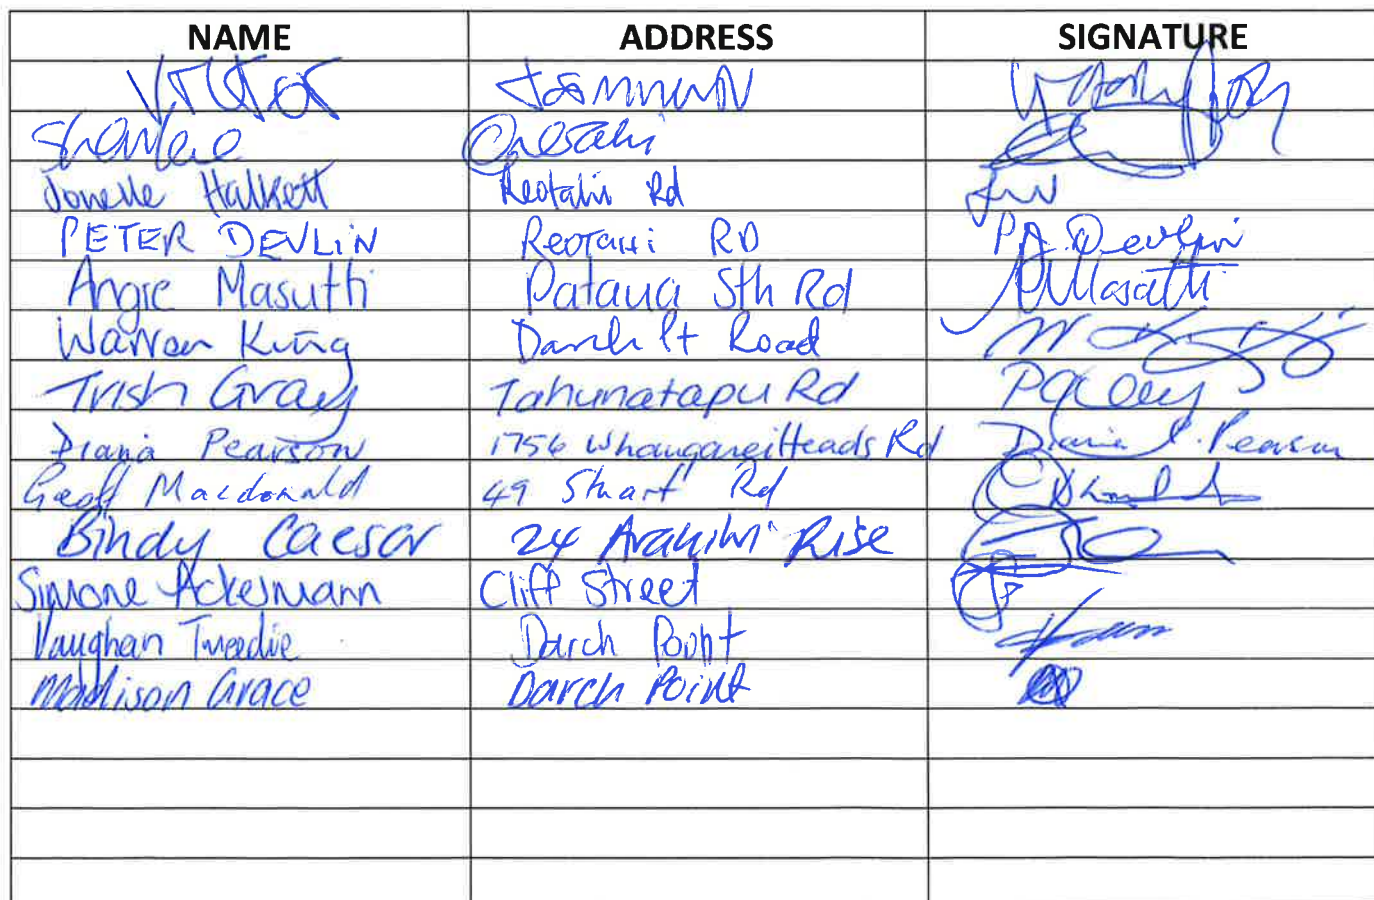 NAME ADDRESS SIGNATURE
Victor
Sharlene
Jonelle Halkett Reotahi Rd
PETER DEVLIN Reotahi RD P.A. Devlin
Angie Masutti Pataua Sth Rd AMasutti
Warren King Darch Pt Road W King
Trish Gray Tahunatapu Rd PGray
Diana Pearson 1756 Whangarei Heads Rd Diana Pearson
Geoff Macdonald 49 Stuart Rd
Bindy Caesar 24 Arakiwi Rise
Simone Ackermann Cliff Street
Vaughan Tweedie Darch Point
Madison Grace Darch Point